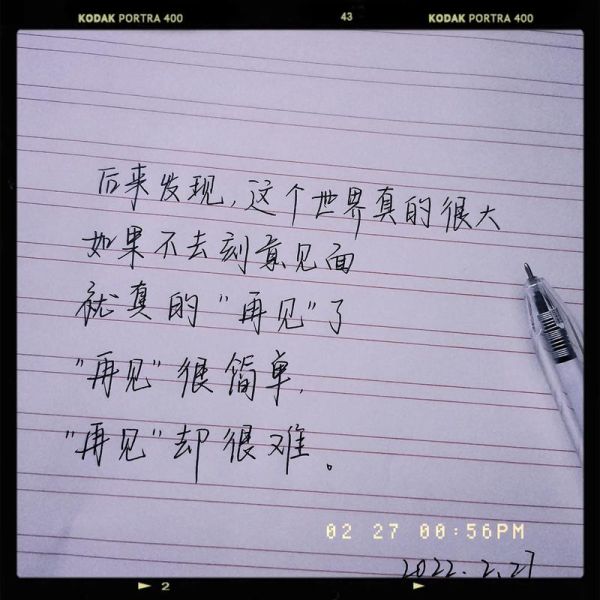 KODAK PORTRA 400 43 KODAK PORTRA 400
后来发现,这个世界真的很大
如果不去刻意见面
就真的"再见"了
"再见"很简单,
"再见"却很难。
02 27 00:56PM
2022.2.27
2